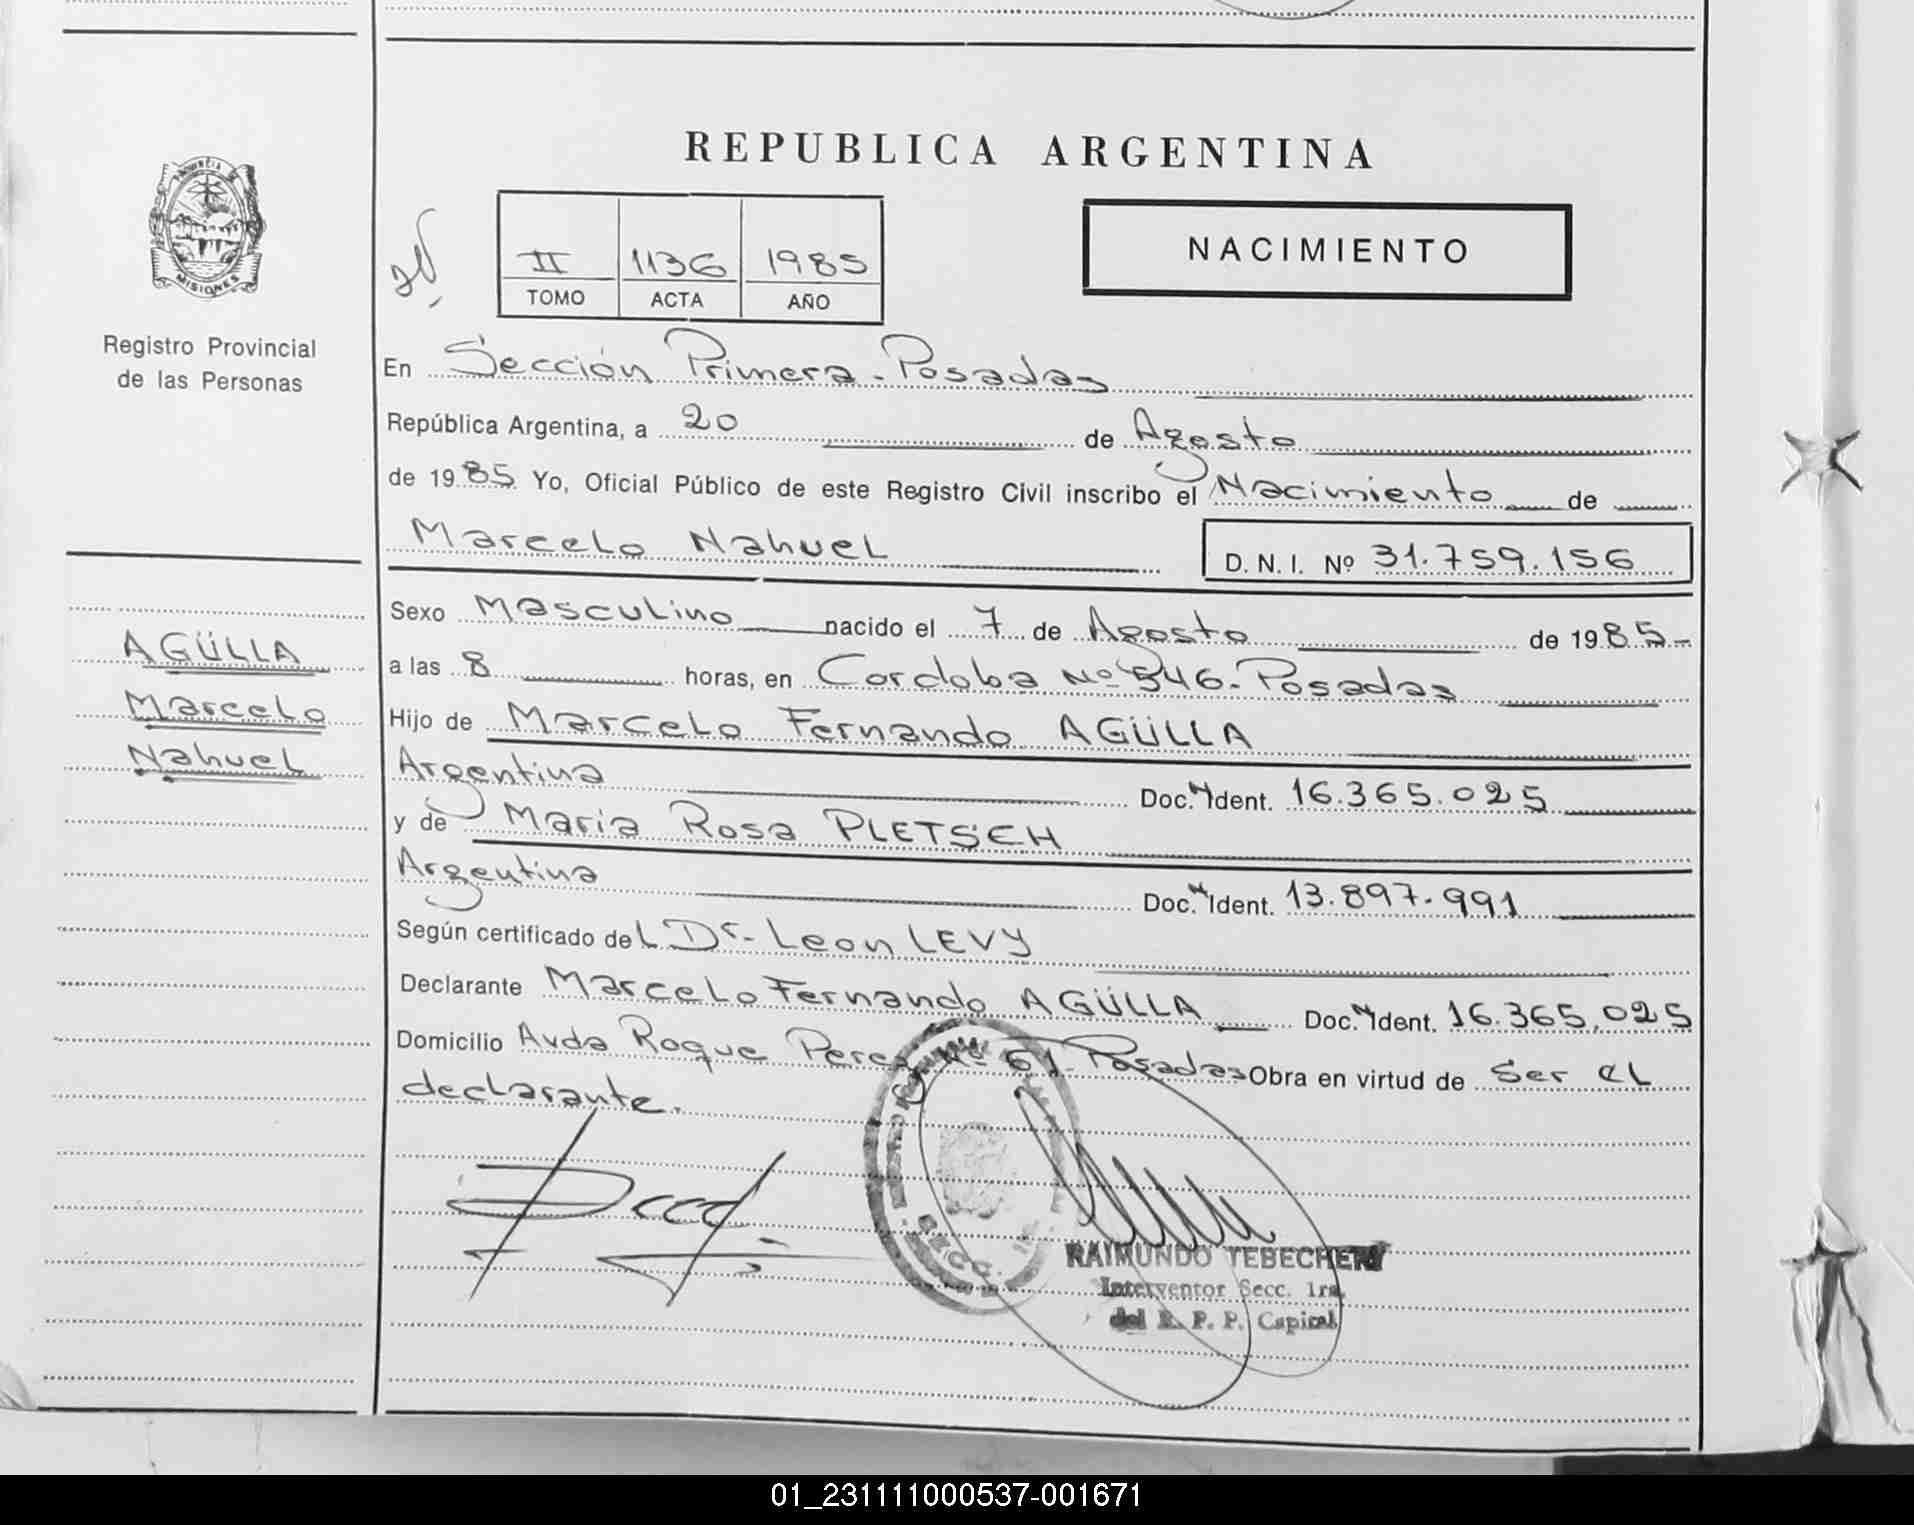 REPUBLICA ARGENTINA
PROVINCIA DE
MISIONES
Registro Provincial
de las Personas
II 1136 1985
TOMO ACTA AÑO
NACIMIENTO
En Sección Primera - Posadas
República Argentina, a 20 de Agosto
de 1985 Yo, Oficial Público de este Registro Civil inscribo el Nacimiento de
Marcelo Nahuel D. N. I. Nº 31.759.156
Sexo Masculino nacido el 7 de Agosto de 1985-
a las 8 horas, en Cordoba Nº 546- Posadas
Hijo de Marcelo Fernando AGÜLLA
Argentina Doc. N Ident. 16.365.025
y de Maria Rosa PLETSCH
Argentina Doc. N Ident. 13.897.991
Según certificado del Dr- Leon LEVY
Declarante Marcelo Fernando AGÜLLA Doc. N Ident. 16.365.025
Domicilio Avda Roque Perez Nº 61- Posadas Obra en virtud de Ser el
declarante.
AGÜLLA
Marcelo
Nahuel
SECC. 1ra
RAIMUNDO TEBECHERY
Interventor Secc. 1ra.
del R. P. P. Capital
01_231111000537-001671